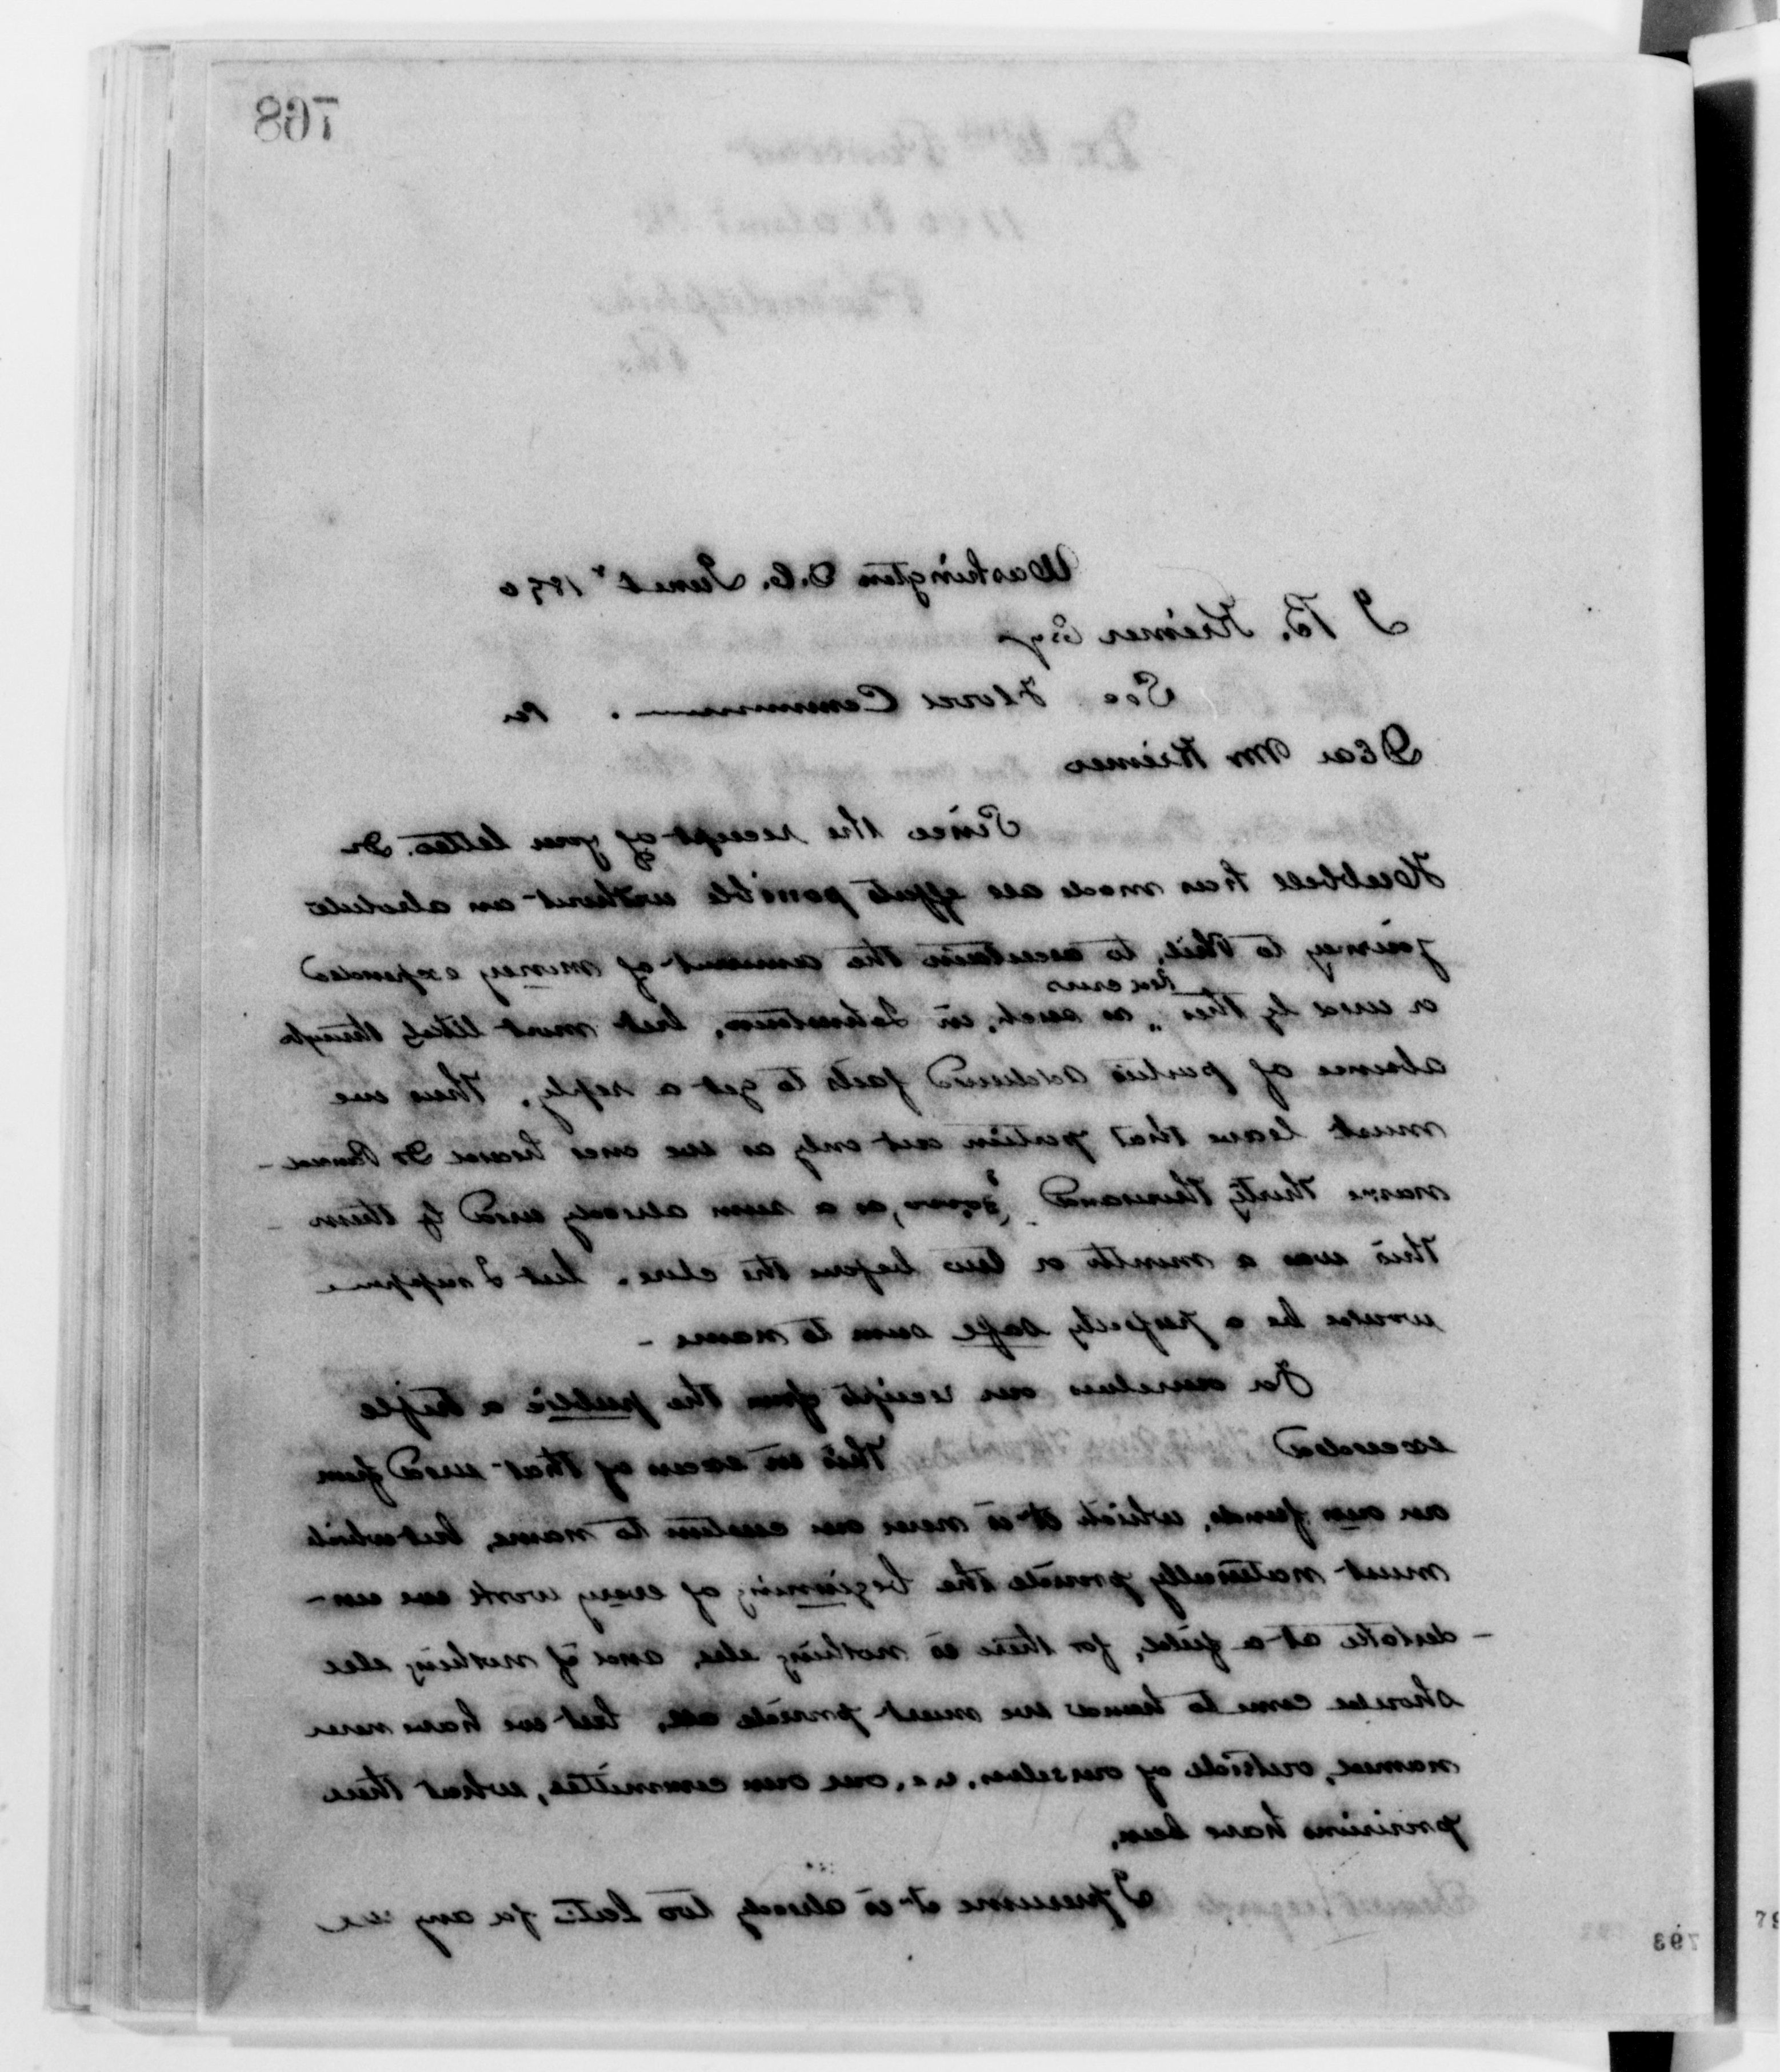 768
Washington D.C. June 1890
J. B. Kremer Esqr
Sec Flood Commission . Pa
Dear Mr Kremer
Since the receipt of your letter. Dr
Hubbell has made all efforts possible without an absolute
journey to Phil, to ascertain the amount of money expended
Red Cross
or used by this " as such, in Johnstown, but most likely through
absence of parties addressed fails to get a reply. Thus we
must leave that portion out only as we once heard Dr
name thirty thousand as a sum already used by them
This was a month or two before the close. but I suppose
would be a perfectly safe sum to name -
For ourselves our receipts from the public a trifle
exceeded This in excess of that used from
our own funds, which it is never our custom to name, but which
must naturally provide the beginning of every work we un-
-dertake at a field, for there is nothing else, and if nothing else
should come to hand we must provide all, but we have never
named, outside of ourselves, i.e. our own committee, what these
provisions have been.
I presume it is already too late for any use
793
79